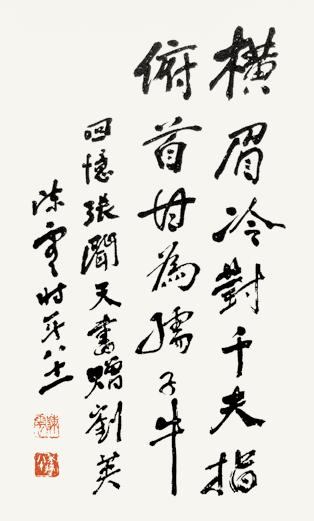 橫眉冷對千夫指
俯首甘為孺子牛
回憶張聞天書贈劉英
陳雲時年八十一
陳雲